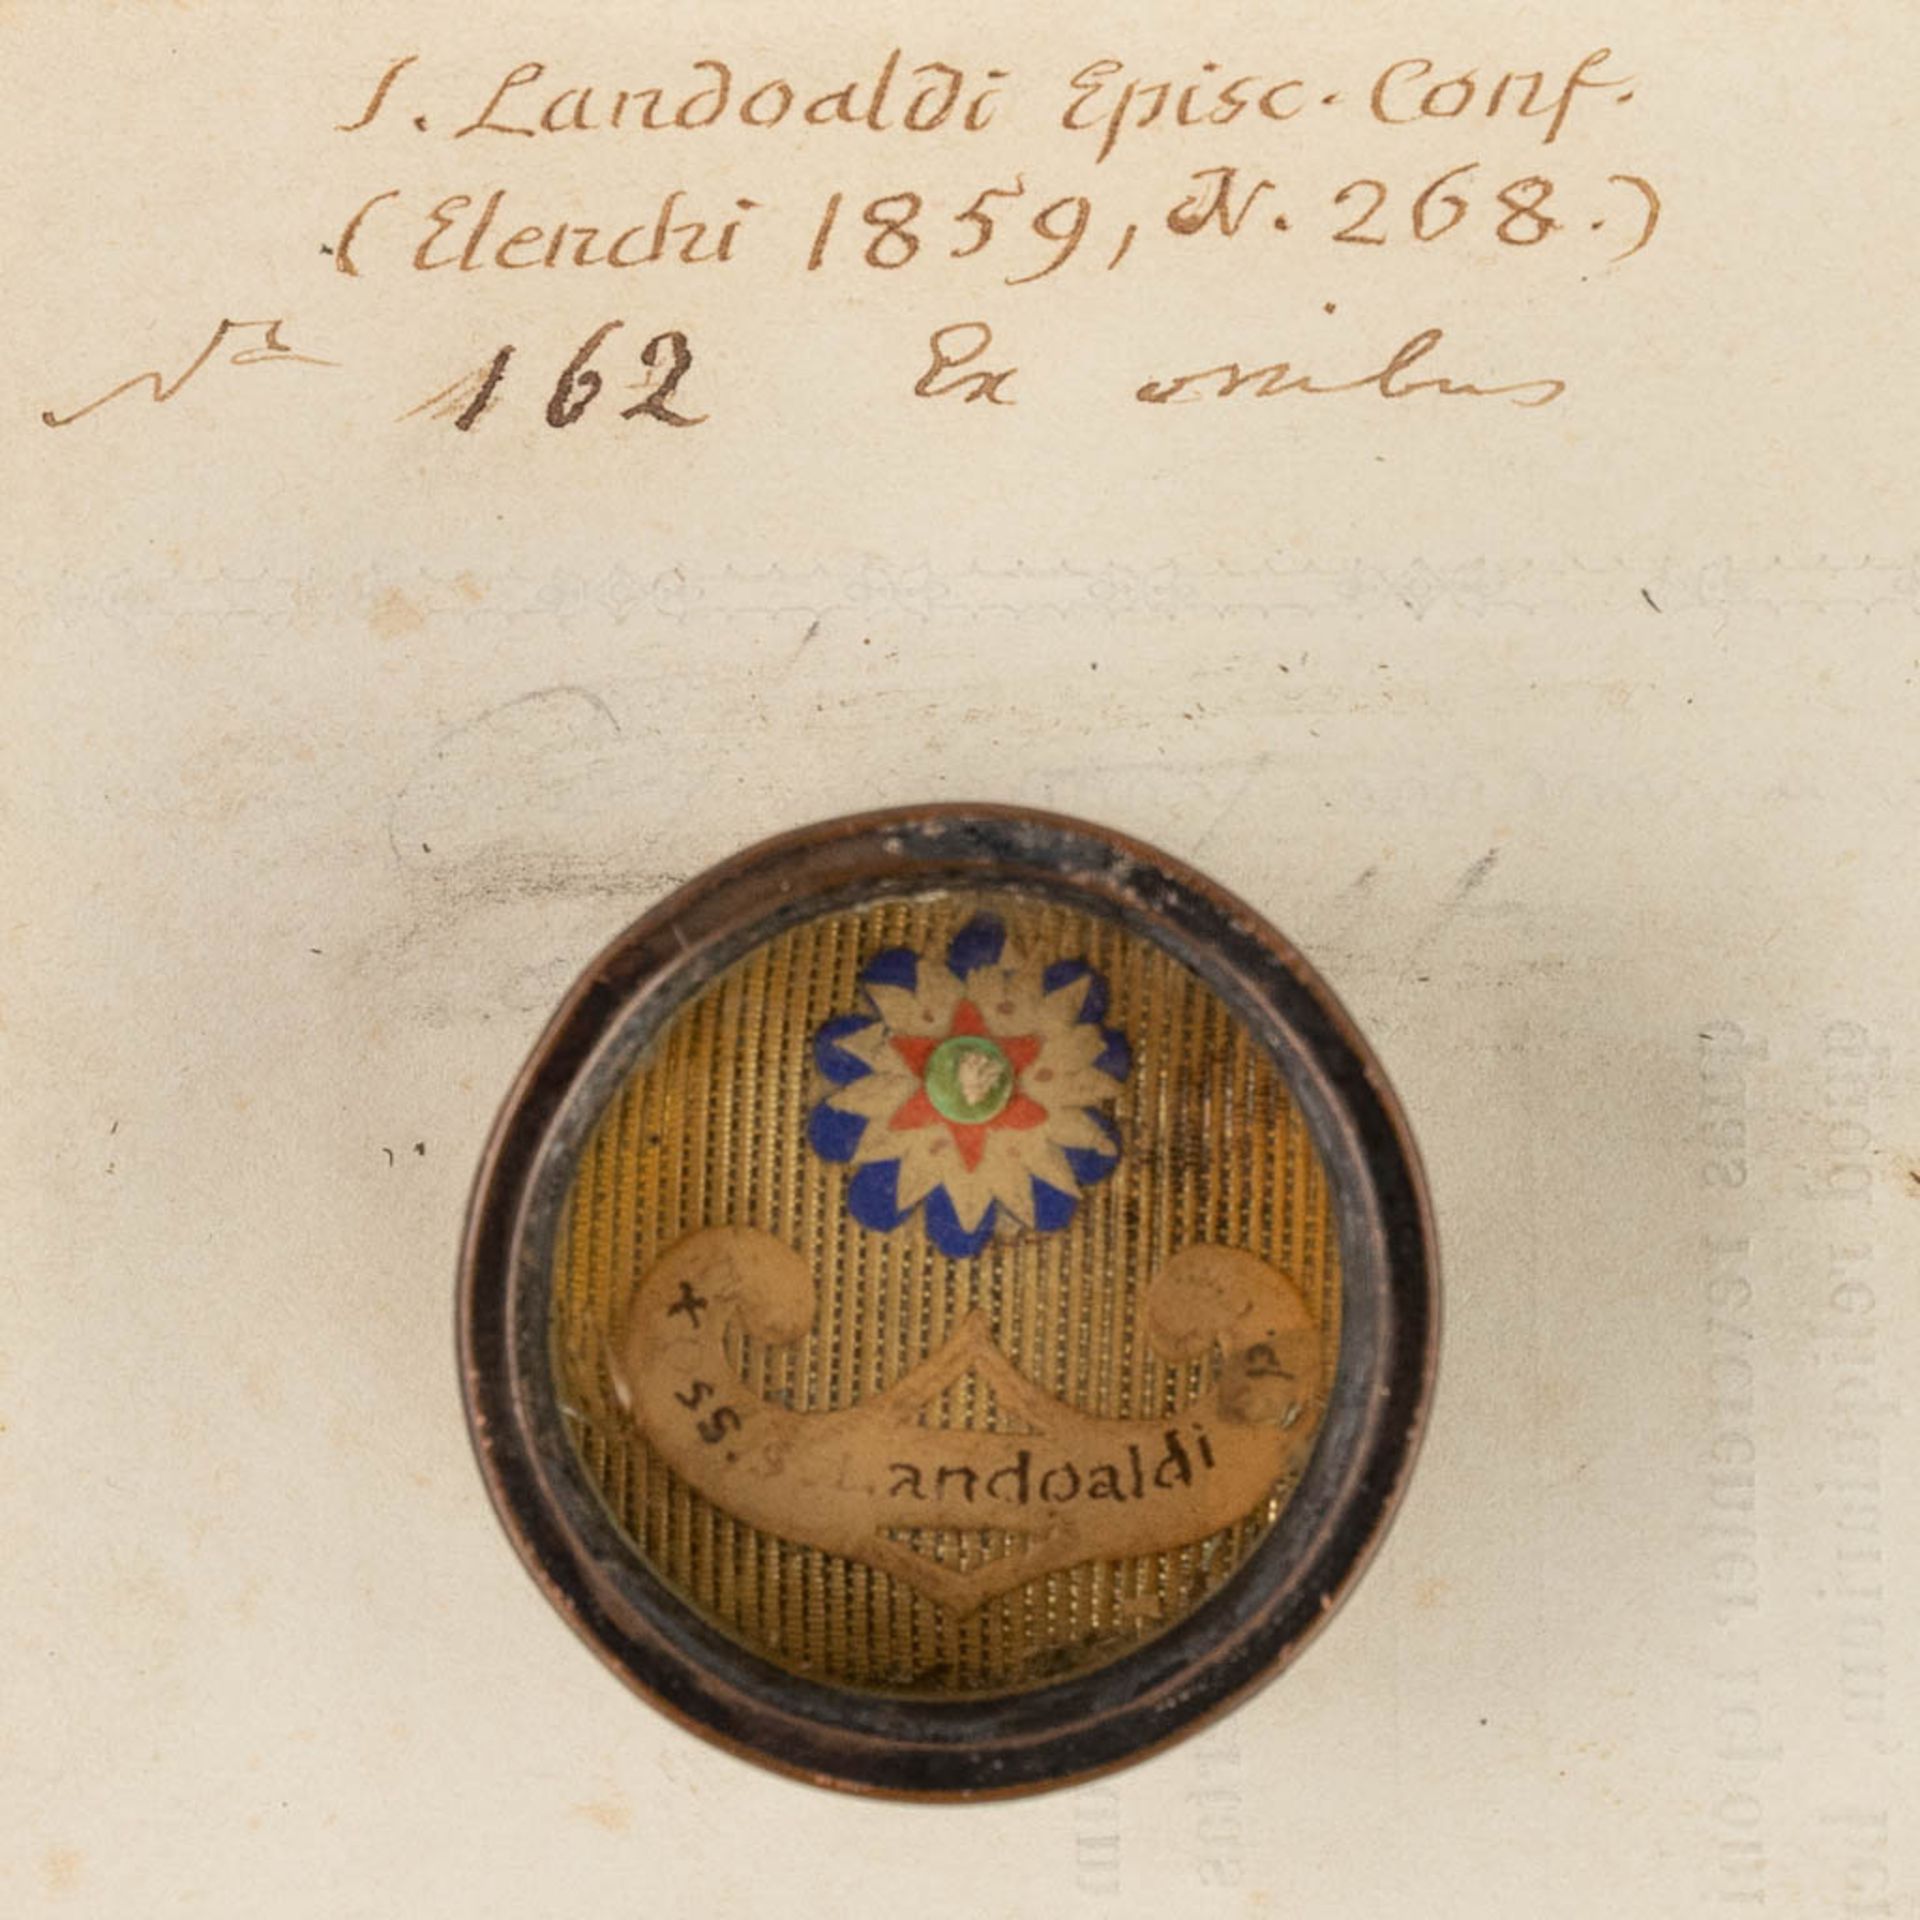 S. Landoaldi Episc. Conf.
(Elenchi 1859, N. 268.)
N° 162 Ex ossibus
x ss. S. Landoaldi